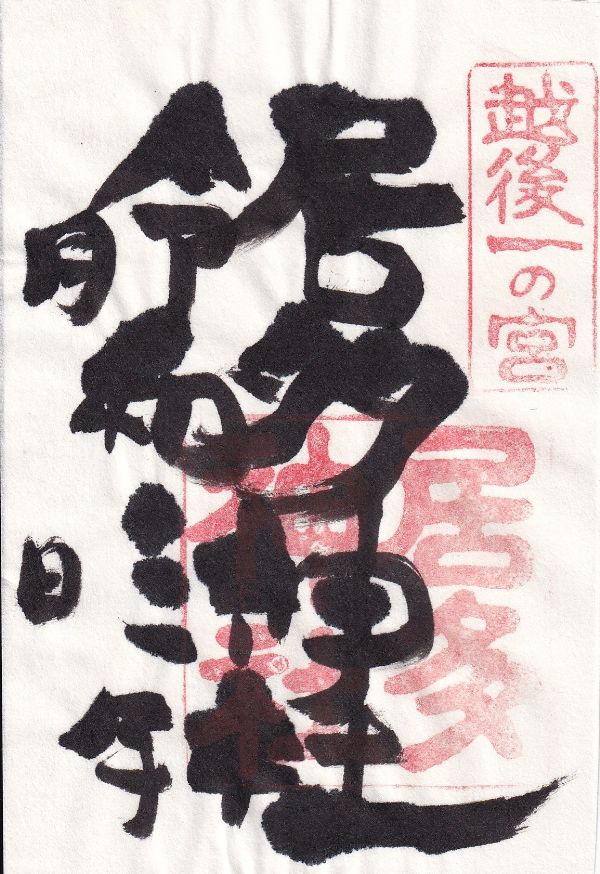 越後一の宮
居多神社
居多
神社
令和三年
月 日